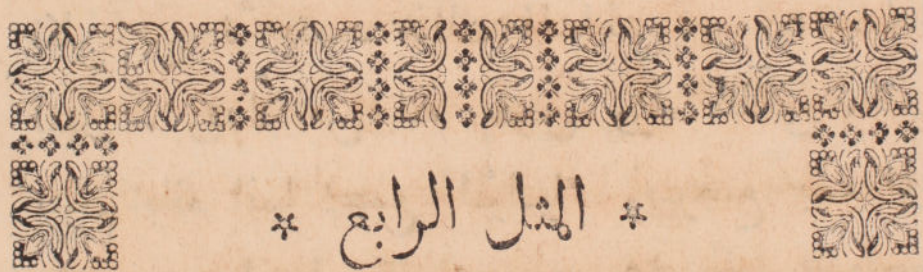 * المثل الرابع *